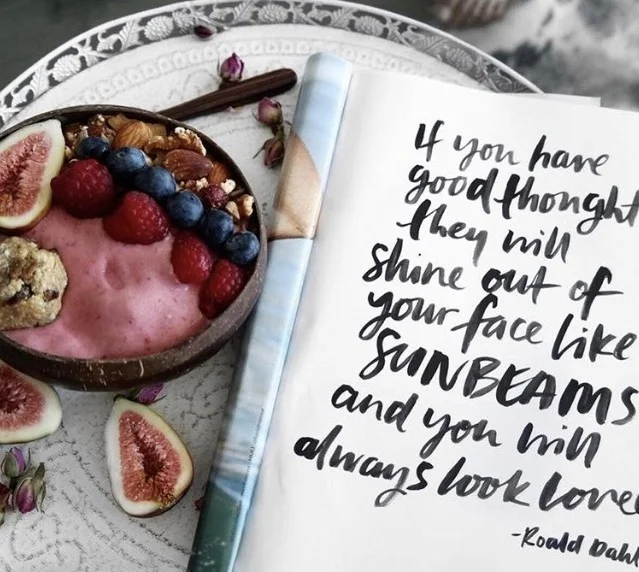 If you have
good thought
they will
shine out of
your face like
SUNBEAMS
and you will
always look love
-Roald Dahl